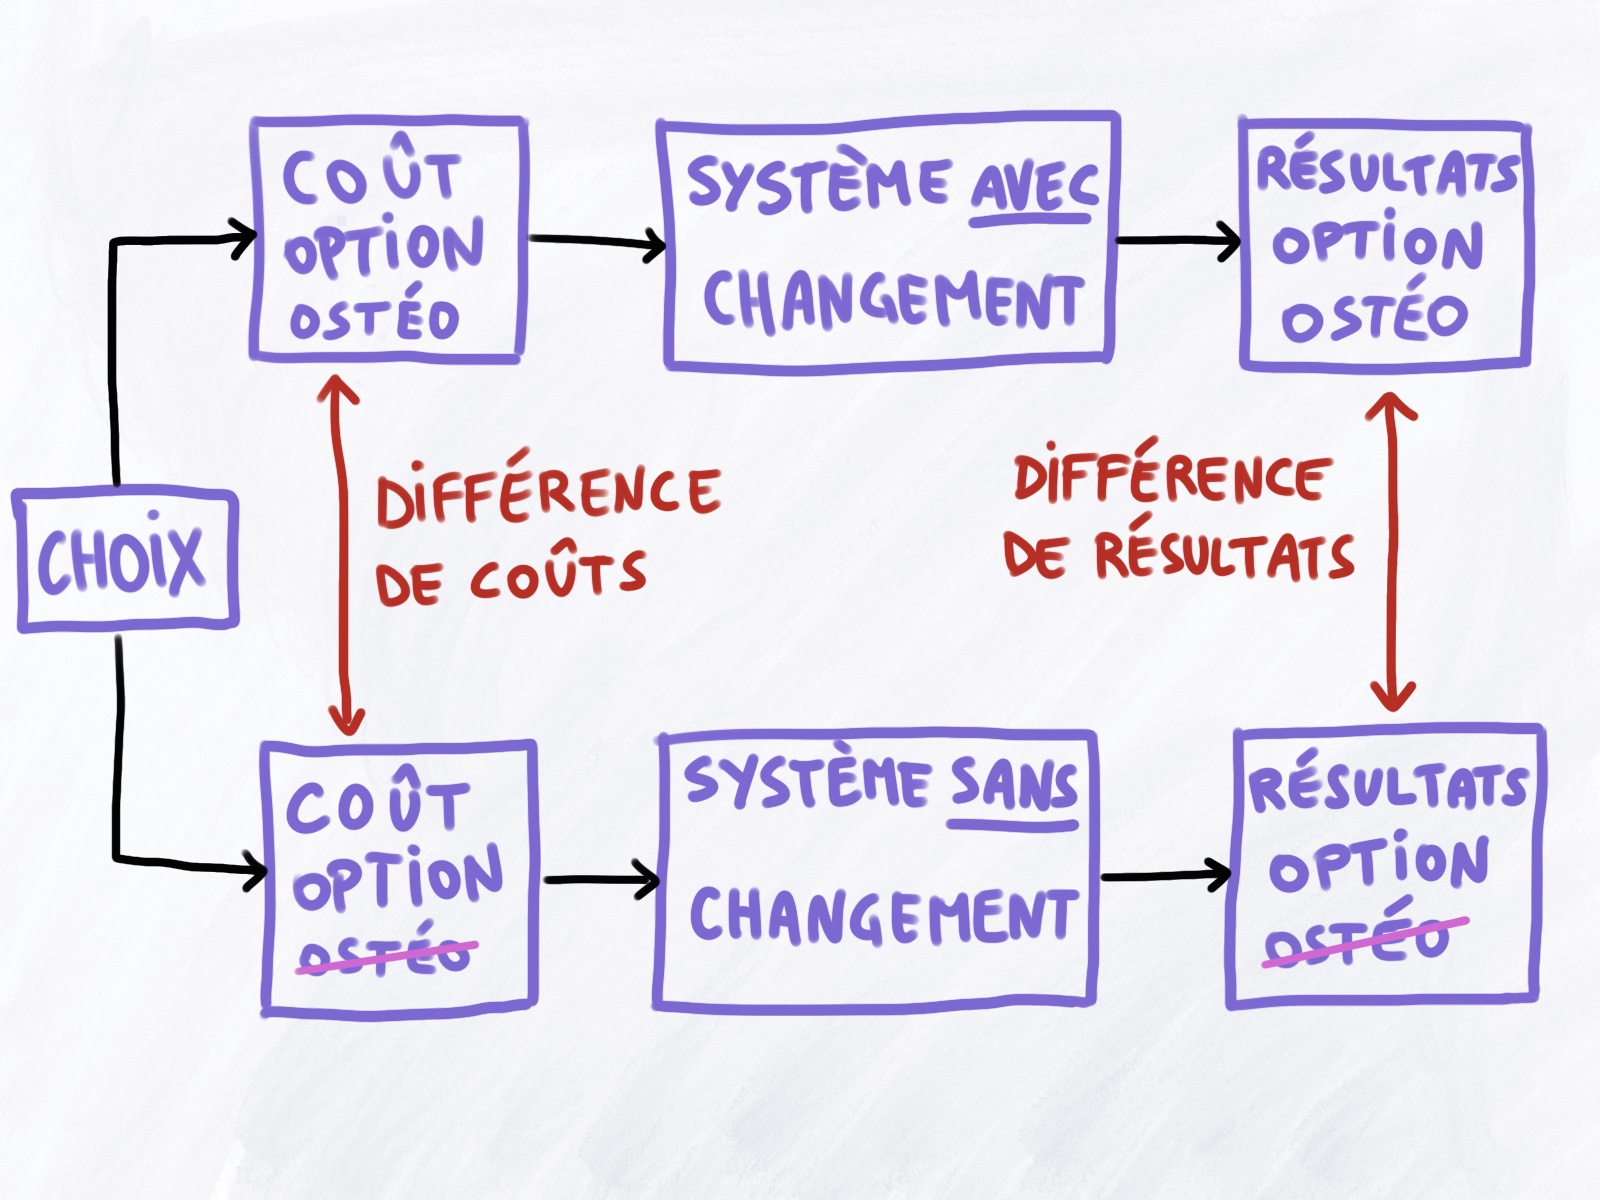 COÛT
OPTION
OSTÉO
SYSTÈME AVEC
CHANGEMENT
RÉSULTATS
OPTION
OSTÉO
CHOIX
DIFFÉRENCE
DE COÛTS
DIFFÉRENCE
DE RÉSULTATS
COÛT
OPTION
OSTÉO
SYSTÈME SANS
CHANGEMENT
RÉSULTATS
OPTION
OSTÉO